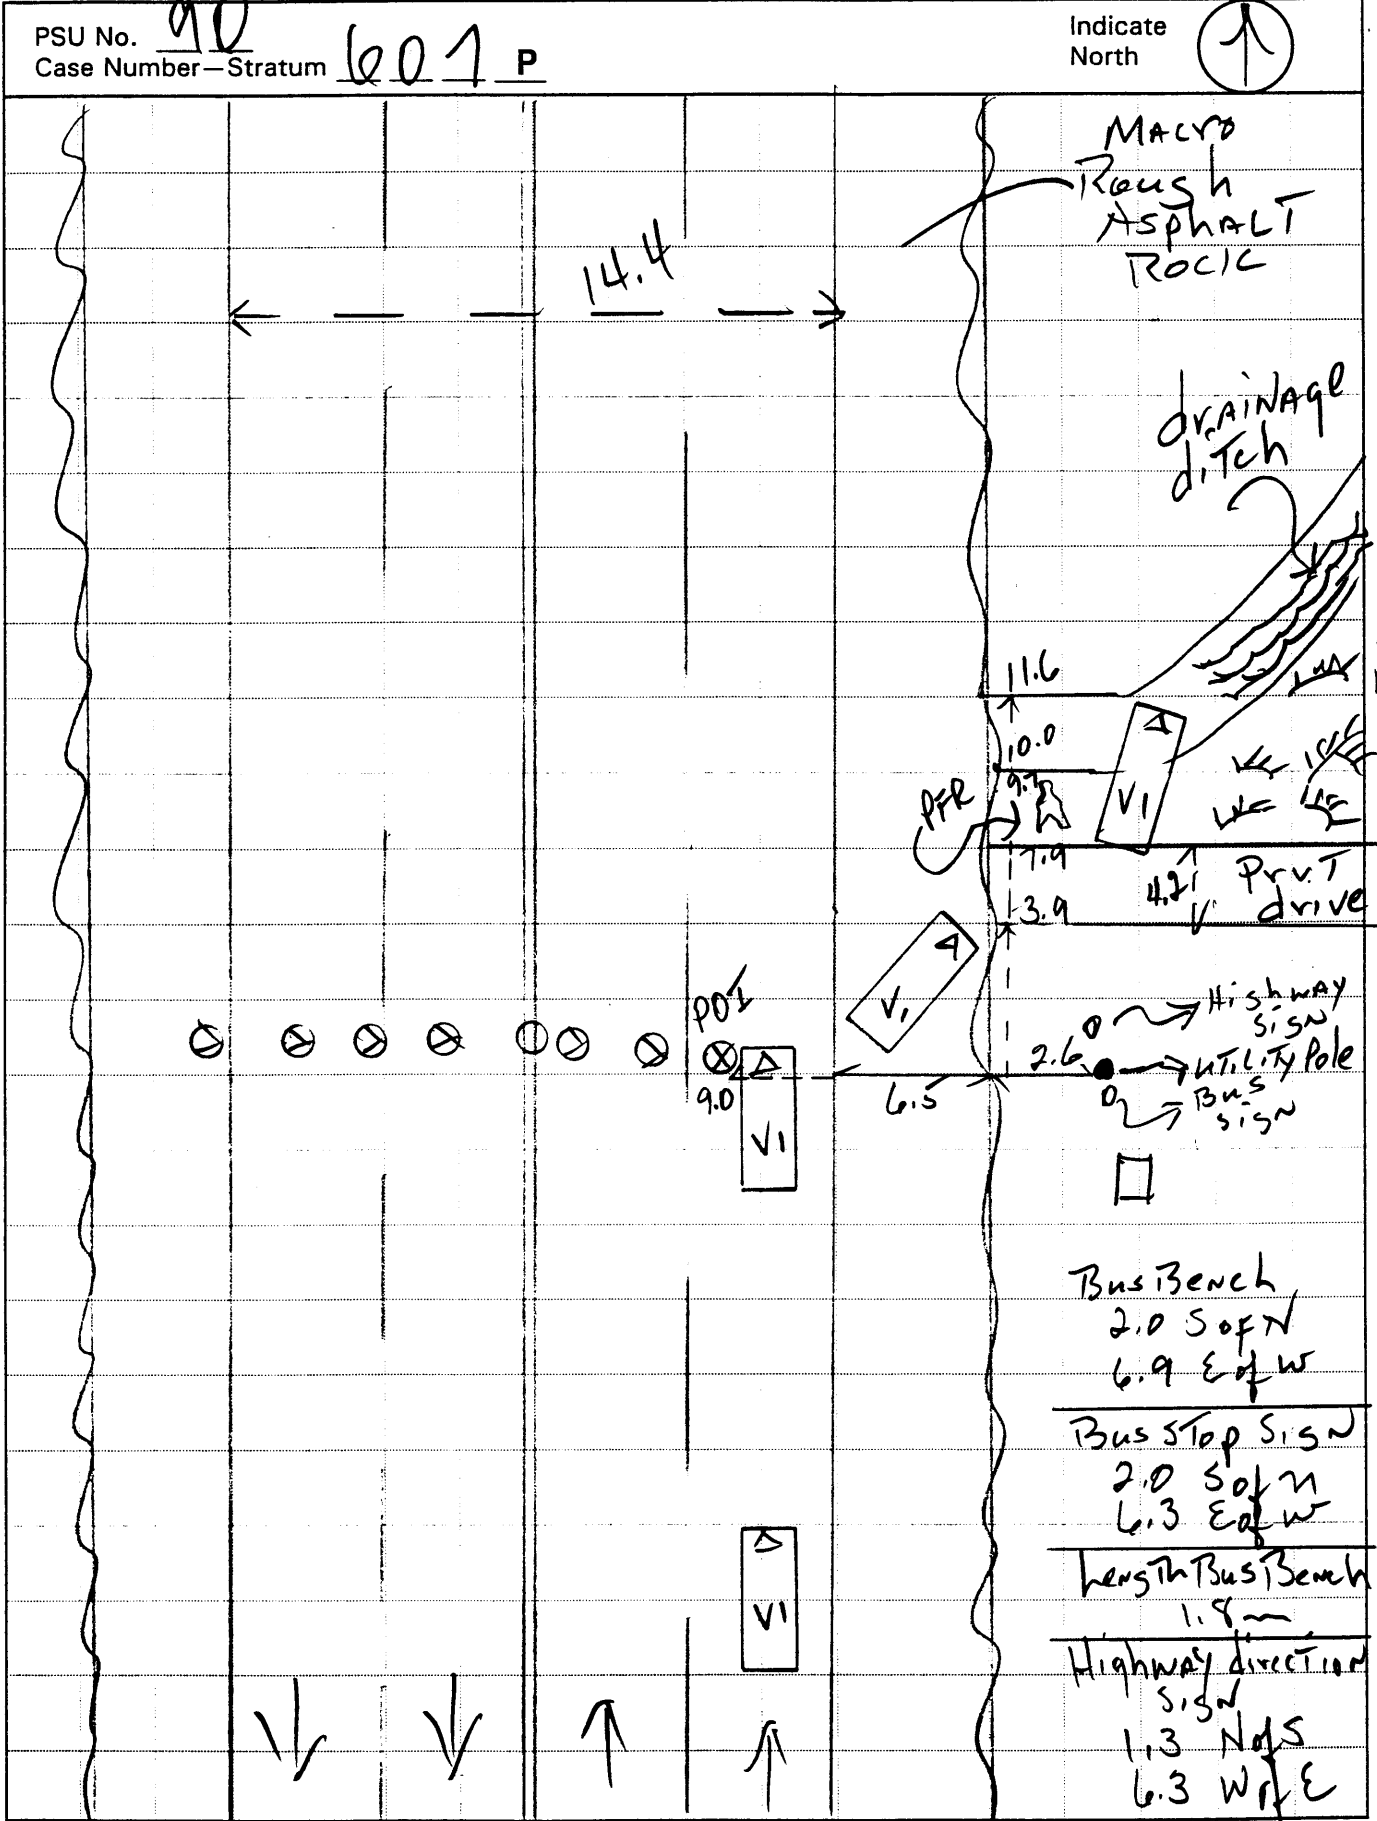 PSU No. 90
Case Number—Stratum 601 P
Indicate
North
MACRO
Rough
ASPHALT
ROCK
14.4
drAiNAge
diTch
11.6
10.0
9.7
PFR
V1
7.9
4.2
PrvT
drive
3.9
V1
POI
HighwAy
SigN
2.6
uTiLiTy Pole
9.0
6.5
Bus
sigN
V1
Bus Bench
2.0 S of N
6.9 E of W
Bus STop SigN
2.0 S of N
6.3 E of W
LengTh Bus Bench
1.8 m
V1
HighwAy direcTioN
SigN
1.3 N of S
6.3 W of E